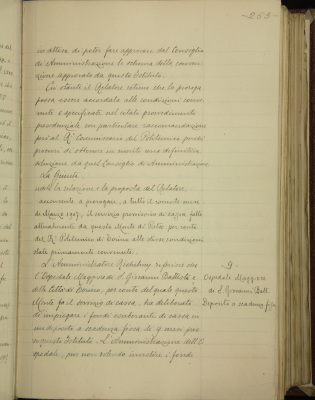 253
in attesa di poter fare approvare dal Consiglio
di Amministrazione lo schema della conven-
zione approvato da questo Istituto.
Ciò stante il Relatore ritiene che la proroga
possa essere accordata alle condizioni conve-
nute e specificate nel citato procedimento
provvedimentale con particolare raccomandazione
però al R.° Commissario del Politecnico perchè
procuri di ottenere in merito una definitiva
adozione da quel Consiglio di Amministrazione.
La Giunta:
udita la relazione e la proposta del Relatore,
annuente a prorogare, a tutto il venturo mese
di Marzo 1907, il servizio provvisorio di cassa fatto
attualmente da questo Monte di Pietà per conto
del R.° Politecnico di Torino alle stesse condizioni
state primamente convenute.
L'Amministratore
l'Ospedale Maggiore di S. Giovanni Battista e
della Città di Torino, per conto del quale questo
Monte fa il servizio di cassa, ha deliberato
di impiegare i fondi esuberanti di cassa in
un deposito a scadenza fissa di 9 mesi presso
questo Istituto. L'Amministrazione dell'O-
spedale, pur non volendo investire i fondi
9.
Ospedale Maggiore
di S. Giovanni Batt.
Deposito a scadenza fissa